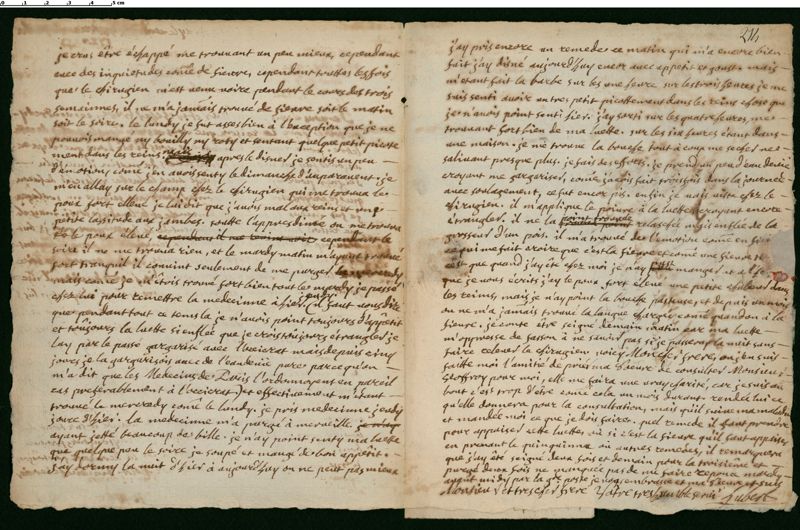 je crus être échappé me trouvant un peu mieux, cependant
avec des inquietudes come de fievre, cependant touttes les fois
que le chirugien m'est venu voir pendant le cours des trois
semaines, il ne m'a jamais trouvé de fievre soit le matin
soit le soir. le lundy je fut assez bien à l'exception que je ne
pouvois mangé ny bouilly ny roty et sentant quelque petit picote
ment dans les reins apres le disner je sentis un peu
d'émotion come j'en avois senty le dimanche d'auparavant. je
m'en allay sur le champ chez le chirugien qui me trouva le
poux fort ellevé je luy dit que j'avois mal aux reins et une
petite lassitude aux jambes. toutte l'apres disnée on me trouva
le poux ellevé, cependant le
soir il ne me trouva rien, et le mardy matin m'ayant trouvé
fort tranquil il convint seulement de me purger le mercredy
mais come je m'etois trouvé fort bien tout le mardy je passé
chez luy pour remettre la medecine à hier. Il faut vous dire
que pendant tout ce temps la je n'avois point toujours d'appetit
et toujours la luette si enflée que je crois toujours étrangler je
l'ay par le passé gargarisé avec l'oxicrat mais depuis cinq
jours je la gargarisois avec de l'eau de vie parce qu'on
m'a dit que les Medecins de Paris l'ordonnoyent en pareil
cas preferablement à l'oxicrat et effectivement m'etant
trouvé le mercredy come le lundy. je pris medecine jeudy
jour d'hier. la medecine m'a purgé à merveille
ayant jetté beaucoup de bille. je n'ay point senty ma luette
que quelque peu le soir je soupé et mangé de bon appetit.
j'ay dormy la nuit d'hier à aujourd'huy on ne peut pas mieux
214
j'ay pris encore un remede ce matin qui m'a encore bien
fait j'ay disné aujourd'huy encor avec appetit et goust mais
m'etant fait la barbe sur les une heure sur les trois heures je me
suis senti avoir un tres petit picottement dans les reins chose que
je n'avois point senti hier. j'ay sorti sur les quatre heures, me
trouvant fort bien de ma luette. sur les six heures etant dans
une maison. je me trouvé la bouche tout à coup me
salivant presque plus. je prend un peu d'eau de vie
croyant me gargariser, come j'avois fait trois fois dans la journée
avec soulagement, ce fut encor pis. enfin je vais viste chez le
chirugien. il m'applique le poivre à la luette croyant encore
étrangler. il ne la relachée mais enflée de la
grosseur d'un pois. il m'a trouvé de l'emotion come en
ce qui me fait croire que c'est la fievre et come une fievre
c'est que quand j'ay été chez moi je n'ay manger et à l'
que je vous écrits j'ay le poux fort elevé une petite chaleur dans
les reins, mais je n'ay point la bouche pasteuse, et depuis un mois
on ne m'a jamais trouvé la langue chargée come quand on a la
fievre. je conte être seigné demain matin car ma luette
m'oppresse de facon à ne savoir pas si je passeray la nuit sans
faire relever le chirugien, voicy Mon cher frere, ou j'en suis
faitte moi l'amitié de prier ma soeur de consulter Monsieur
Geoffroy pour moi, elle me faira une vraye charité, car je suis au
bout c'est trop d'être come cela un mois durant rendés lui ce
qu'elle donnera pour la consultation, mais qu'il suive ma maladie
et mandé moi ce que je dois faire. quel remede il faut prendre
pour appaiser cette luette, ou si c'est la fievre qu'il faut appaiser
en prenant le quinquinna ou autres remedes, il remarquera
que j'ay été seigné deux fois et demain pour la troisième et
purgé deux fois ne manquée pas de me faire reponce mardy
avant midy par la g.de poste je vous embrasse et ma soeur et suis
Monsieur et tres cher frere Vôtre tres humble Aubert